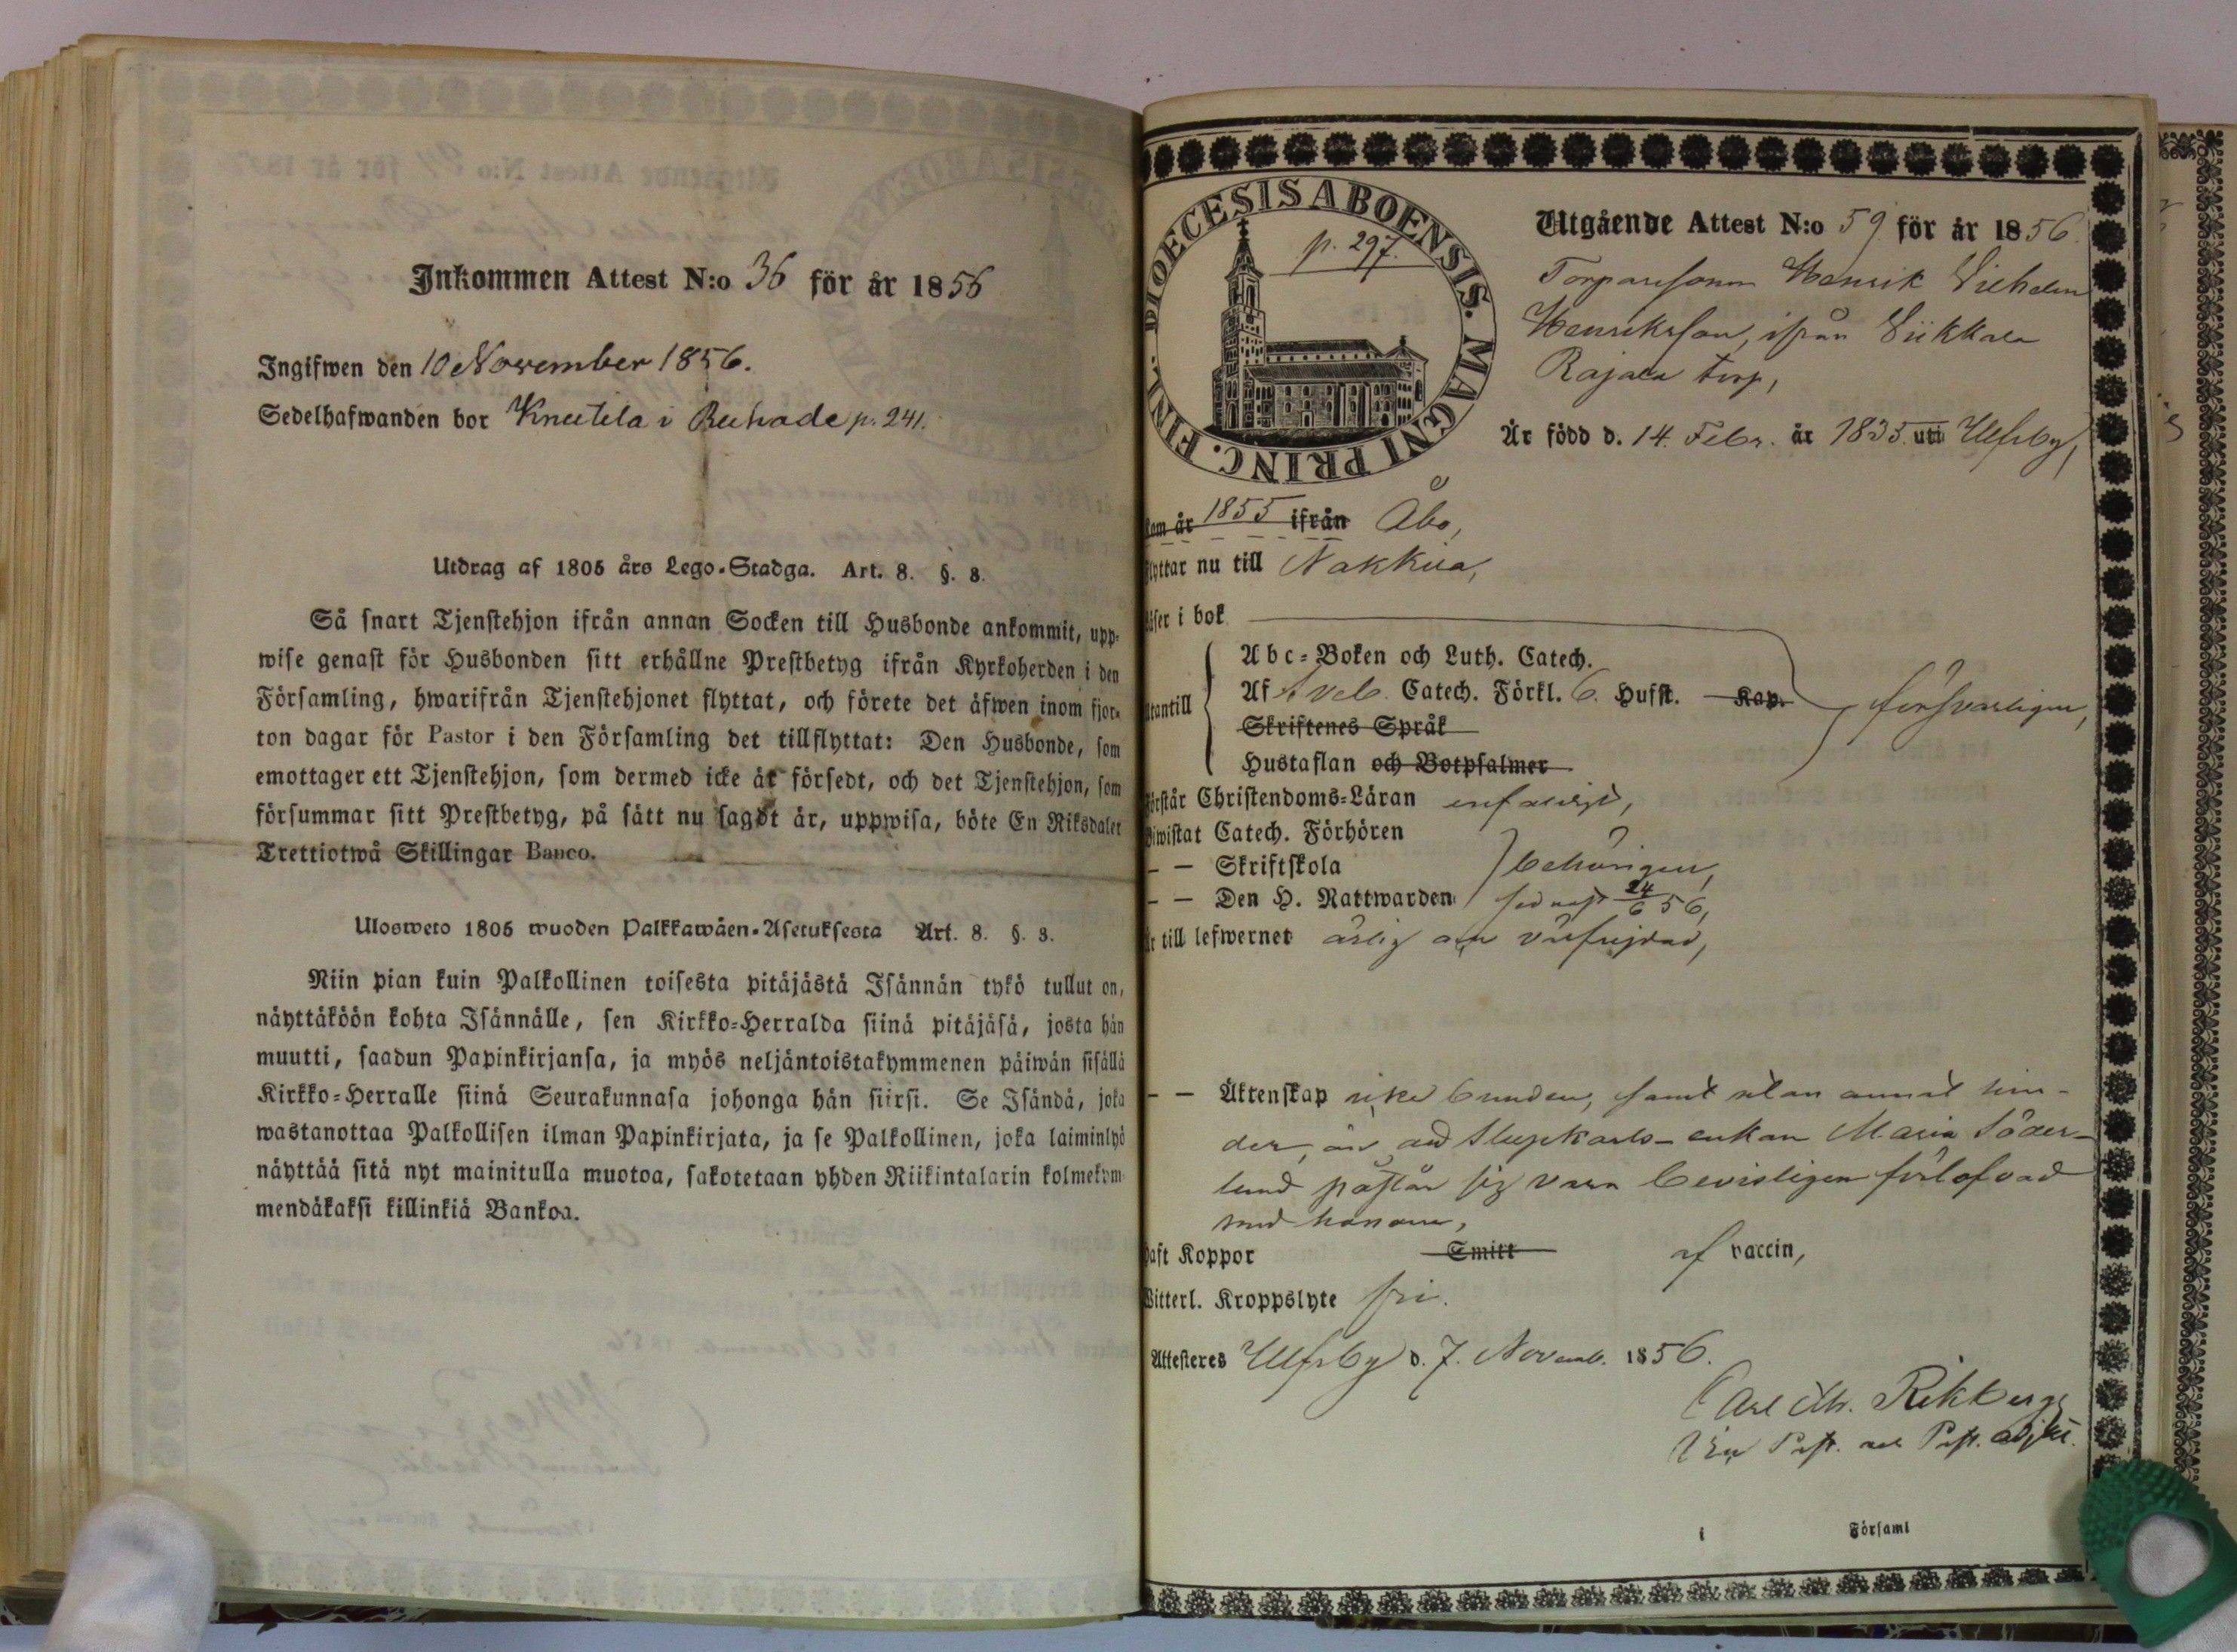 Inkommen Attest N:o 36 för år 1856
Ingifwen den 10 November 1856.
Sedelhafwanden bor Knutila i Ruhade p. 241.
Utdrag af 1805 års Lego-Stadga. Art. 8. §. 8.
Så snart Tjenstehjon ifrån annan Socken till Husbonde ankommit, upp-
wise genast för Husbonden sitt erhållne Prestbetyg ifrån Kyrkoherden i den
Församling, hwarifrån Tjenstehjonet flyttat, och förete det äfwen inom fjor-
ton dagar för Pastor i den Församling det tillflyttat: Den Husbonde, som
emottager ett Tjenstehjon, som dermed icke är försedt, och det Tjenstehjon, som
försummar sitt Prestbetyg, på sätt nu sagdt är, uppwisa, böte En Riksdaler
Trettiotwå Skillingar Banco.
Ulosweto 1805 wuoden Palkkawäen-Asetuksesta Art. 8. §. 3.
Niin pian kuin Palkollinen toisesta pitäjästä Isännän tykö tullut on,
näyttäköön kohta Isännälle, sen Kirkko-Herralda siinä pitäjäsä, josta hän
muutti, saadun Papinkirjansa, ja myös neljäntoistakymmenen päiwän sisällä
Kirkko-Herralle siinä Seurakunnasa johonga hän siirsi. Se Isändä, joka
wastanottaa Palkollisen ilman Papinkirjata, ja se Palkollinen, joka laiminlyö
näyttää sitä nyt mainitulla muotoa, sakotetaan yhden Riikintalarin kolmekym-
mendäkaksi killinkiä Bankoa.
DIOECESIS ABOENSIS. MAGNI PRINC. FINL.
p. 297.
Utgående Attest N:o 59 för år 1856.
Torparesonen Henrik Vilhelm
Henriksson, ifrån Viikkala
Rajala torp,
Är född d. 14. Febr. år 1835. uti Ulfsby,
kom år 1855 ifrån Åbo,
flyttar nu till Nakkila,
läser i bok
utantill
Abc-Boken och Luth. Catech.
Af Sveb. Catech. Förkl. 6. Hufst. Kap.
Skriftenes Språk
Hustaflan och Botpsalmer
försvarligen,
förstår Christendoms-Läran enfaldigt,
biwistat Catech. Förhören
— — Skriftskola
behörigen,
— — Den H. Nattwarden sednast 24/6 56,
Är till lefwernet ärlig och väfrejdad,
— — Äktenskap icke bunden, samt utan annat hin-
der, än att Slupkarls-enkan Maria Söder-
lund påstår sig vara bevisligen förlofvad
med honom,
haft Koppor Smitt af vaccin,
Witterl. Kroppslyte fri.
Attesteres Ulfsby d. 7. Novemb. 1856.
Carl Ch. Rikberg
i Församl